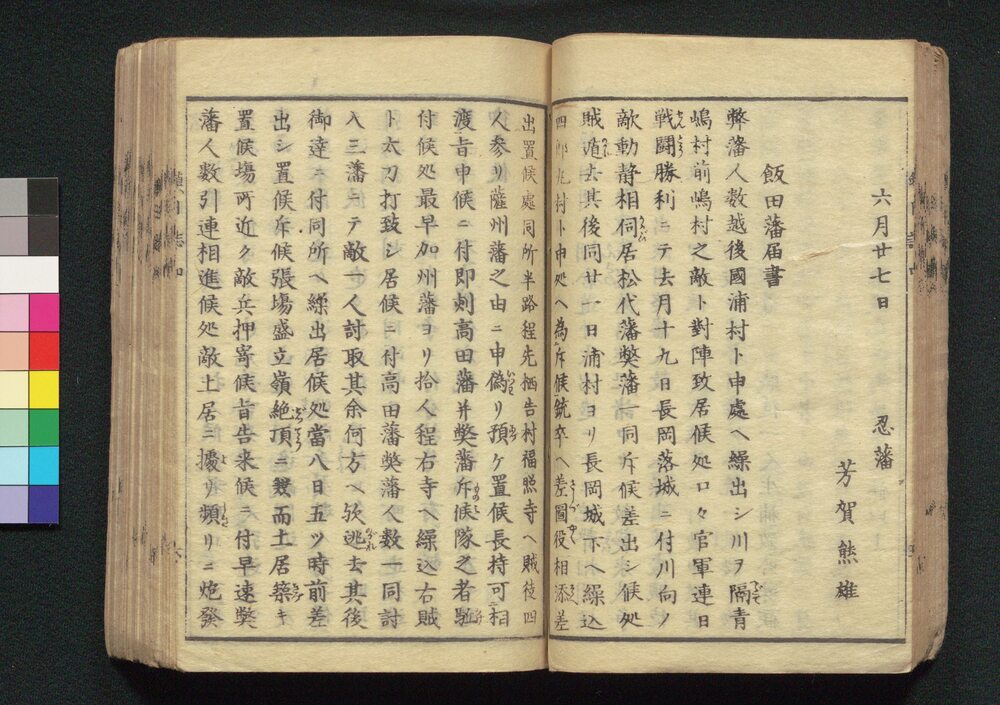 六月廿七日
忍藩
芳賀熊雄
飯田藩届書
弊藩人数越後國浦村ト申處ヘ繰出シ川ヲ隔青
嶋村前嶋村之敵ト對陣致居候処口々官軍連日
戦闘勝利ニテ去月十九日長岡落城ニ付川向ノ
敵動静相伺居松代藩獘藩一同斥候差出シ候処
賊遁去其後同廿一日浦村ヨリ長岡城下ヘ繰込
村ト申処ヘ為斥候銃卒ヘ差圖役相添差
出置候處同所半路程先栖吉村福照寺ヘ賊徒四
人参リ薩州藩之由ニ申偽リ預ケ置候長持可相
渡旨申候ニ付即刻高田藩并獘藩斥候隊之者馳
付候処最早加州藩ヨリ拾人程右寺ヘ繰込右賊
ト太刀打致シ居候ニ付高田藩獘藩人数一同討
入三藩ニテ敵一人討取其余何方ヘ欤逃去其後
御達ニ付同所ヘ繰出居候処當八日五ツ時前差
出シ置候斥候張場盛立嶺絶頂ニ幾而土居築キ
置候場所近ク敵兵押寄候旨告来候ニ付早速弊
藩人数引連相進候処敵土居ニ擾リ頻リニ炮發